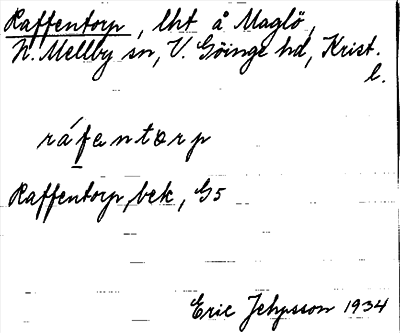 Raffentorp, lht å Maglö,
N. Mellby sn, V. Göinge hd, Krist.
l.
ráfentorp
Raffentorp, bek, G5
Eric Jehpsson 1934